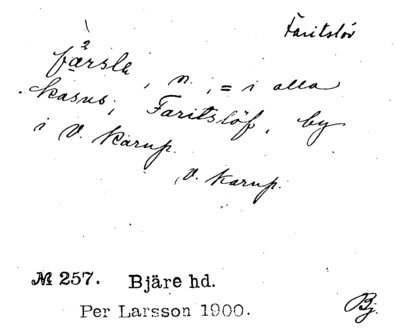 Faritslöv
färsle, n., = i alla
kasus; Faritslöf, by
i V. Karup.
V. Karup.
№ 257. Bjäre hd.
Per Larsson 1900.
Bj.